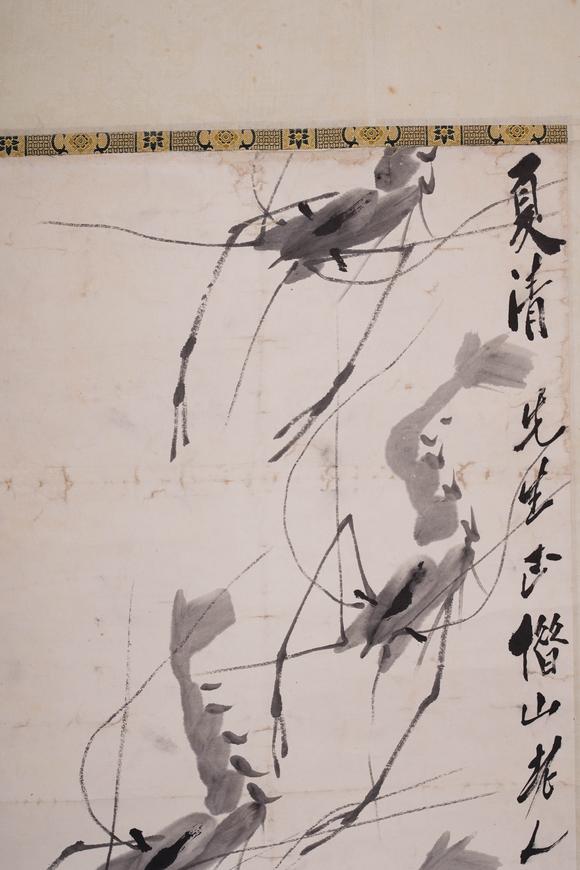 夏清 先生正 借山老人